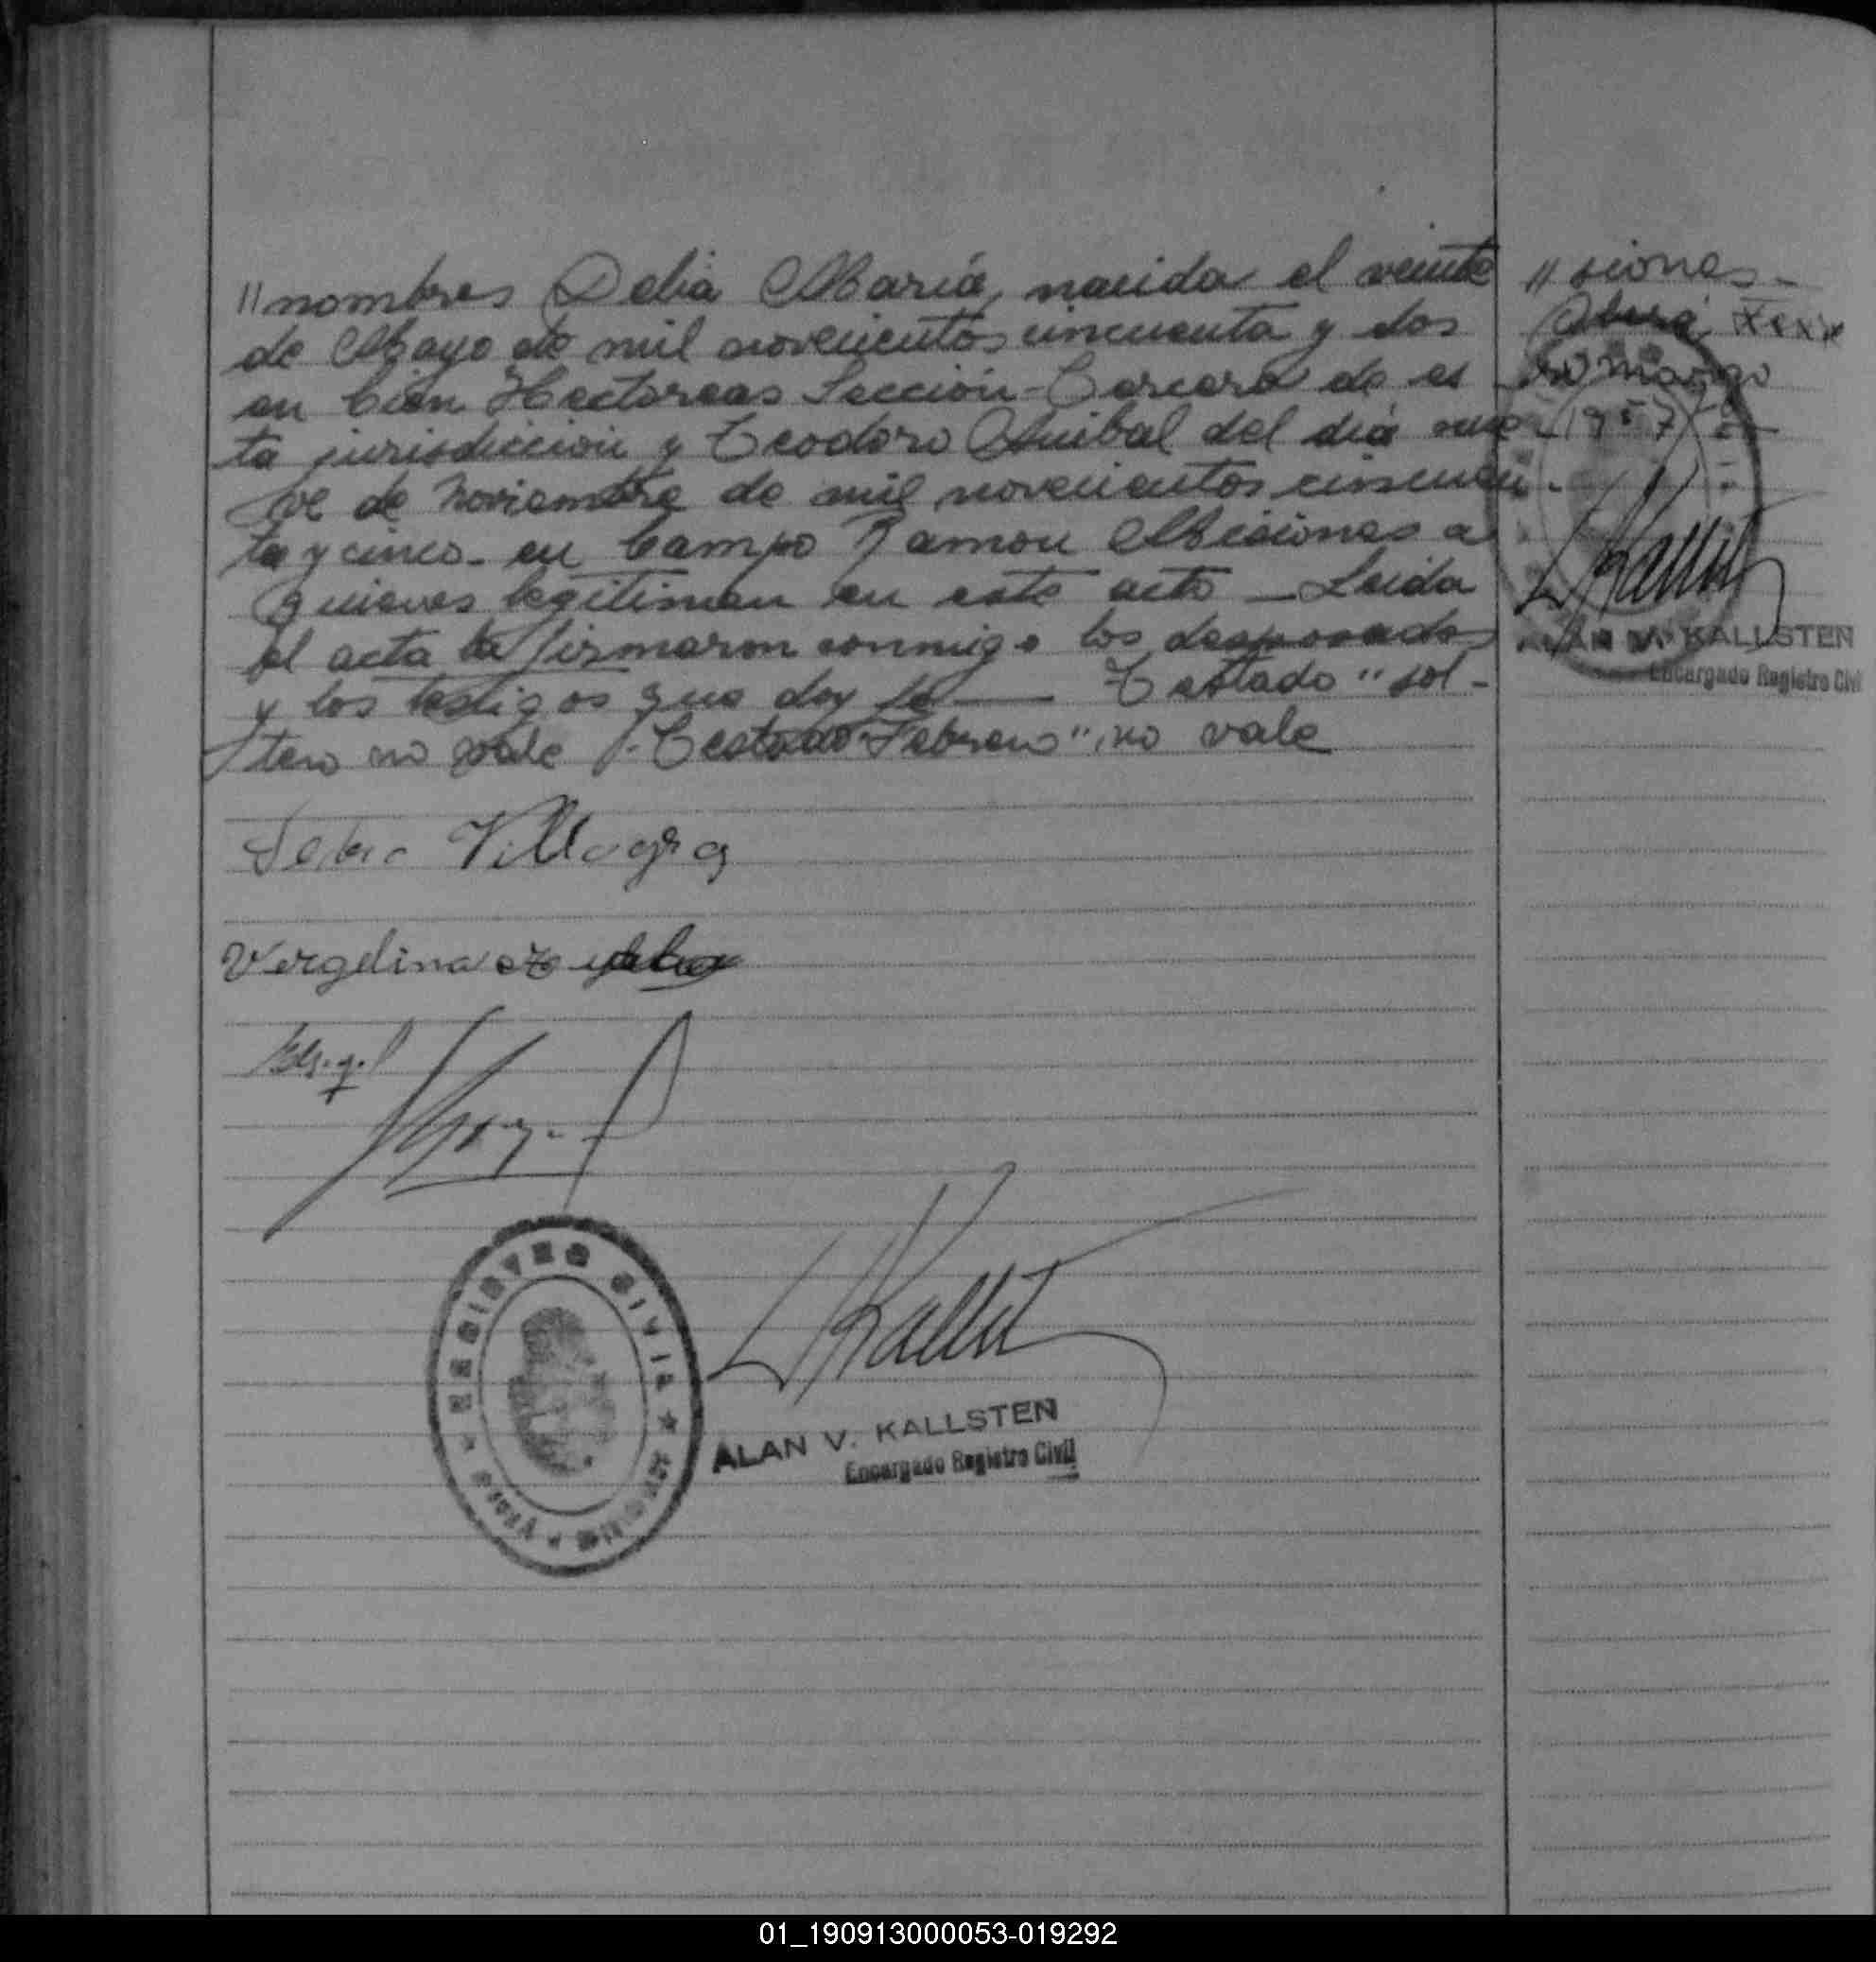 "nombres Delia María, nacida el veinte
de Mayo de mil novecientos cincuenta y dos
en Cien Hectareas Sección Tercera de es
ta jurisdicción y Teodoro Anibal del día nue
ve de Noviembre de mil novecientos cincuen-
ta y cinco en Campo Ramon Misiones a
quienes legitiman en este acto – Leida
el acta la firmaron conmigo los desposados
y los testigos que doy fe — Testado "sol-
tero no vale – Testado "Febrero" no vale
Villagra
Vergelina
REGISTRO CIVIL
ALAN V. KALLSTEN
Encargado Registro Civil
"siones –
Oberá
marzo
1957
ALAN V. KALLSTEN
Encargado Registro Civil
01_190913000053-019292